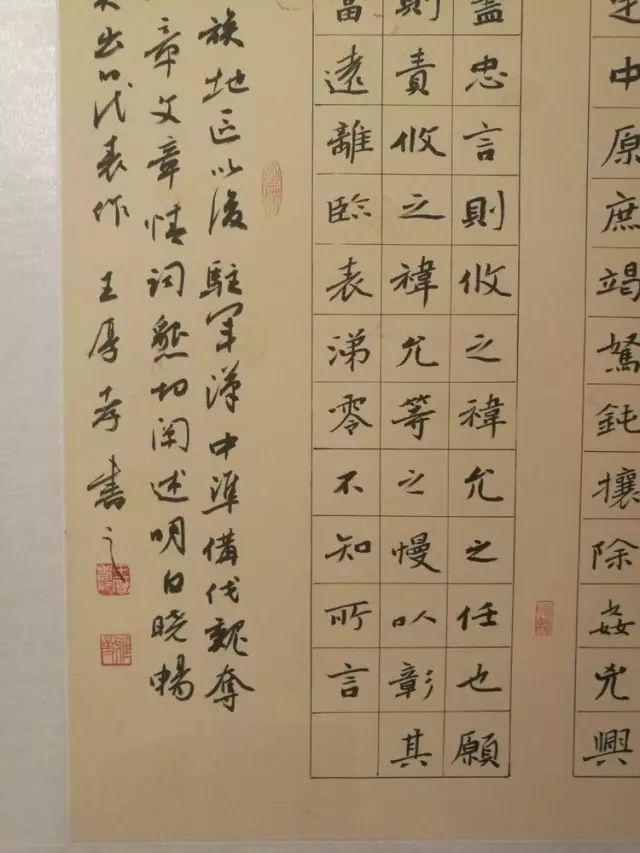 定中原庶竭駑鈍攘除姦兇興
盡忠言則攸之禕允之任也願
則責攸之禕允等之慢以彰其
當遠離臨表涕零不知所言
族地区以後駐军漢中準備伐魏奪
章文章情词懇切阐述明白晓暢
出的代表作 王厚孝書之